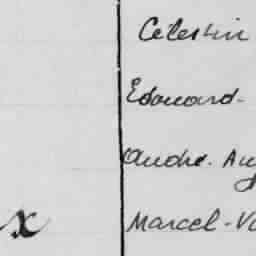 Celestin
Edouard.
Andre. Au
x Marcel-Va